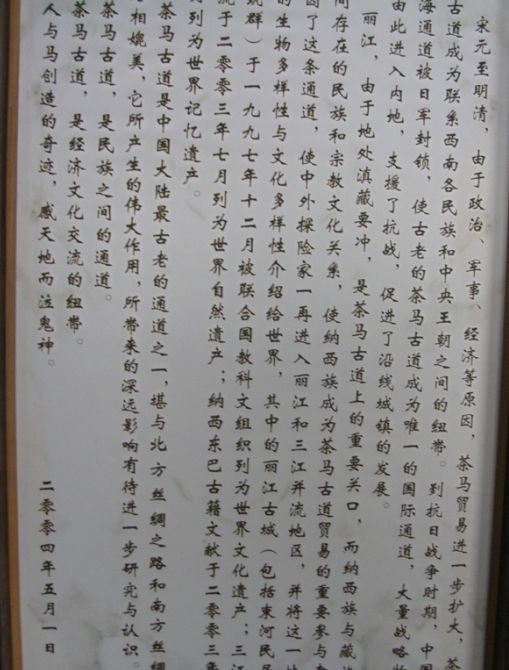 宋元至明清，由于政治、军事、经济等原因，茶马贸易进一步扩大，茶
古道成为联系西南各民族和中央王朝之间的纽带。到抗日战争时期，中
海通道被日军封锁，使古老的茶马古道成为唯一的国际通道，大量战略
由此进入内地，支援了抗战，促进了沿线城镇的发展。
丽江，由于地处滇藏要冲，是茶马古道上的重要关口，而纳西族与藏
间存在的民族和宗教文化关系，使纳西族成为茶马古道贸易的重要参与
因了这条通道，使中外探险家一再进入丽江和三江并流地区，并将这一
的生物多样性与文化多样性介绍给世界，其中的丽江古城（包括束河民
筑群）于一九九七年十二月被联合国教科文组织列为世界文化遗产；三江
流于二零零三年七月列为世界自然遗产；纳西东巴古籍文献于二零零三年
列为世界记忆遗产。
茶马古道是中国大陆最古老的通道之一，堪与北方丝绸之路和南方丝绸
相媲美，它所产生的伟大作用，所带来的深远影响有待进一步研究与认识。
茶马古道，是民族之间的通道。
茶马古道，是经济文化交流的纽带。
人与马创造的奇迹，感天地而泣鬼神。
二零零四年五月一日